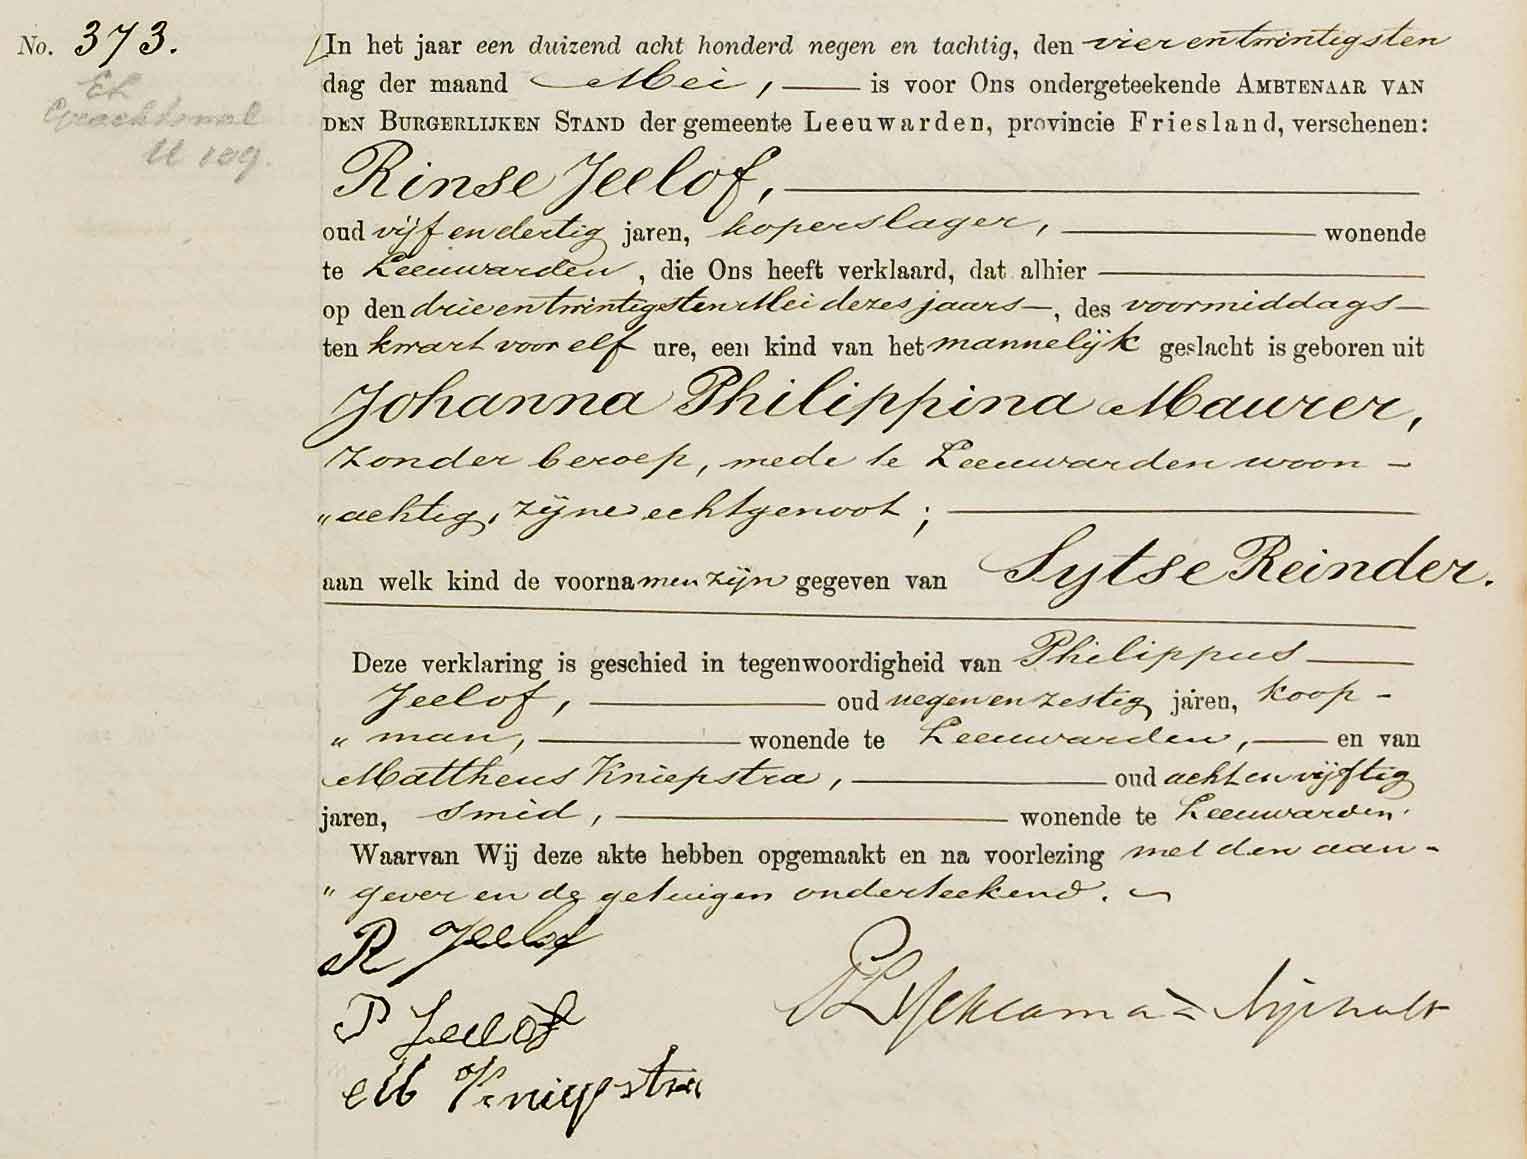 No. 373.
In het jaar een duizend acht honderd negen en tachtig, den vier en twintigsten
dag der maand Mei, is voor Ons ondergeteekende AMBTENAAR VAN
DEN BURGERLIJKEN STAND der gemeente Leeuwarden, provincie Friesland, verschenen:
Rinse Jeelof,
oud vijf en dertig jaren, koperslager, wonende
te Leeuwarden, die Ons heeft verklaard, dat alhier
op den drie en twintigsten Mei dezes jaars, des voormiddags
ten kwart voor elf ure, een kind van het mannelijk geslacht is geboren uit
Johanna Philippina Maurer,
zonder beroep, mede te Leeuwarden woon-
"achtig, zijne echtgenoot;
aan welk kind de voornamen zijn gegeven van Sytse Reinder.
Deze verklaring is geschied in tegenwoordigheid van Philippus
Jeelof, oud negen en zestig jaren, koop-
"man, wonende te Leeuwarden, en van
Mattheus Kniepstra, oud acht en vijftig
jaren, smid, wonende te Leeuwarden.
Waarvan Wij deze akte hebben opgemaakt en na voorlezing met den aan-
"gever en de getuigen onderteekend.
R Jeelof
P Jeelof
M Kniepstra